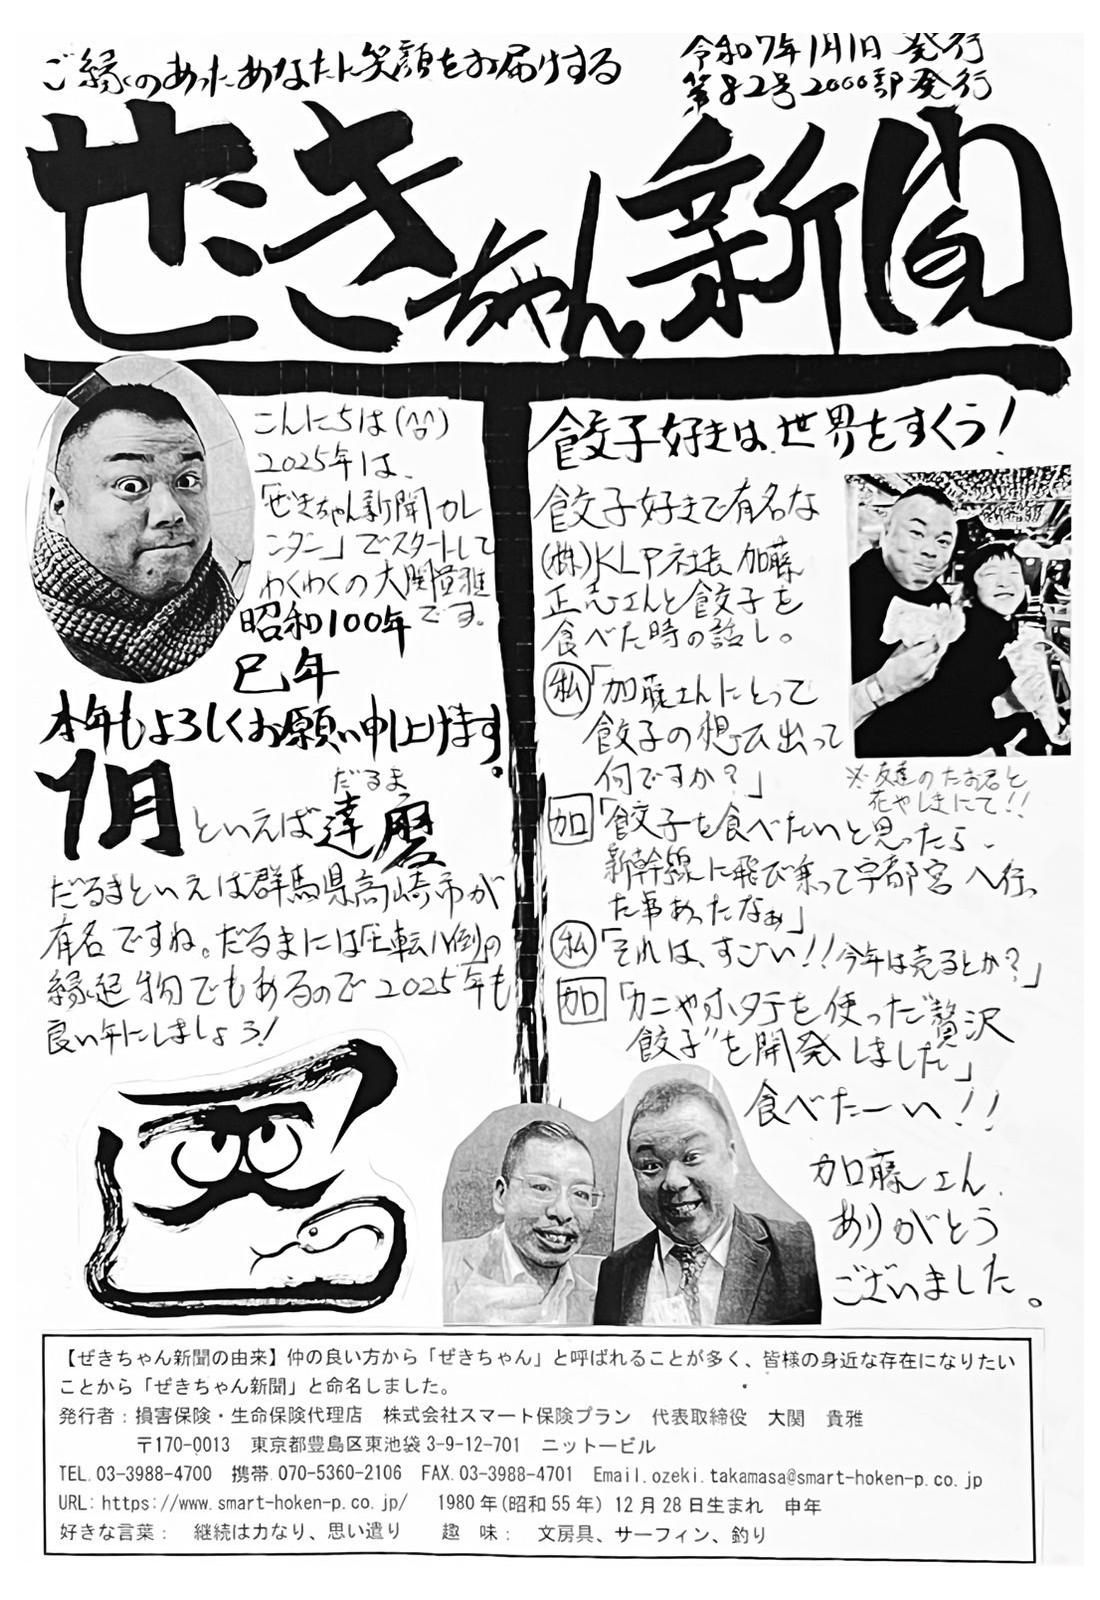 ご縁のあったあなたに笑顔をお届けする
令和7年1月1日 発行
第82号 2000部発行
ぜきちゃん新聞
こんにちは(^^)
2025年は、
「ぜきちゃん新聞カレ
ンダー」でスタートして
わくわくの大関貴雅
です。
昭和100年
巳年
本年もよろしくお願い申し上げます。
1月といえば達磨
だるま
だるまといえば群馬県高崎市が
有名ですね。だるまには「七転八倒」の
縁起物でもあるので2025年も
良い年にしましょう!
餃子好きは、世界をすくう!
餃子好きで有名な
(株)KLP社長 加藤
正志さんと餃子を
食べた時の話し。
私「加藤さんにとって
餃子の想い出って
何ですか?」
※友達のたお君と
花やしきにて!!
加「餃子を食べたいと思ったら、
新幹線に飛び乗って宇都宮へ行っ
た事あったなぁ」
私「それは、すごい!!今年は売るとか?」
加「カニやホタテを使った"贅沢
餃子"を開発しました」
食べたーい!!
加藤さん、
ありがとう
ございました。
【ぜきちゃん新聞の由来】仲の良い方から「ぜきちゃん」と呼ばれることが多く、皆様の身近な存在になりたい
ことから「ぜきちゃん新聞」と命名しました。
発行者：損害保険・生命保険代理店 株式会社スマート保険プラン 代表取締役 大関 貴雅
〒170-0013 東京都豊島区東池袋3-9-12-701 ニットービル
TEL.03-3988-4700 携帯.070-5360-2106 FAX.03-3988-4701 Email.ozeki.takamasa@smart-hoken-p.co.jp
URL:https://www.smart-hoken-p.co.jp/ 1980年(昭和55年) 12月28日生まれ 申年
好きな言葉： 継続は力なり、思い遣り 趣 味： 文房具、サーフィン、釣り